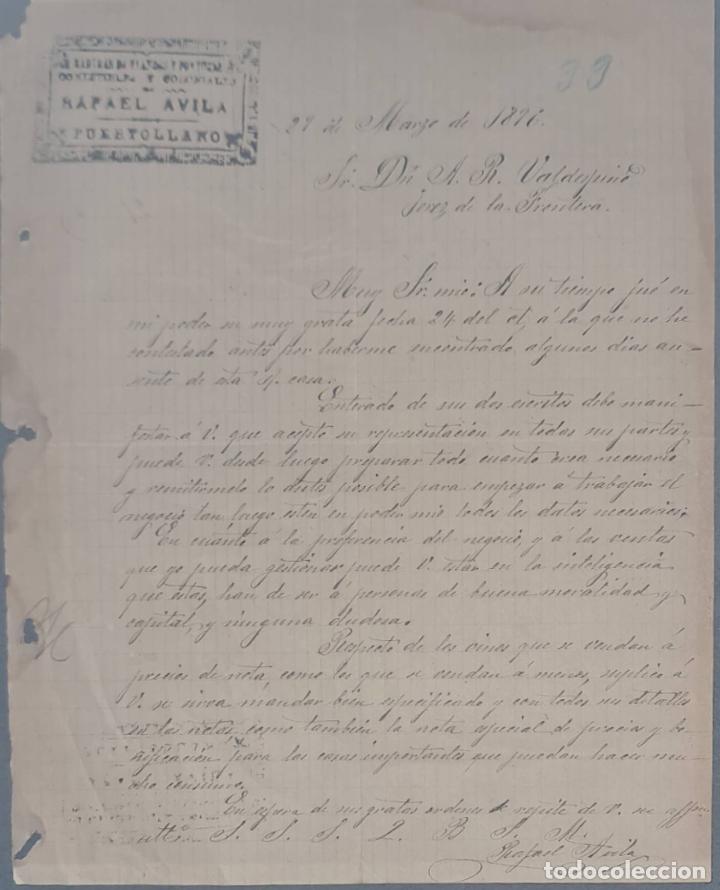 COMESTIBLES Y COLONIALES
DE
RAFAEL AVILA
PUERTOLLANO
33
29 de Marzo de 1896.
Sr. Dn A. R. Valdespino
Jerez de la Frontera.
Muy Sr. mio: A su tiempo fué en
mi poder su muy grata fecha 24 del ct, á la que no he
contestado antes por haberme encontrado algunos dias au-
sente de esta s/. casa.
Enterado de sus dos escritos debo mani-
festar á V. que acepto su representación en todas sus partes, y
puede V. desde luego preparar todo cuanto crea necesario
y remitirmelo lo antes posible para empezar a trabajar el
negocio tan luego esten en poder mio todos los datos necesarios.
En cuánto á la preferencia del negocio, y á las ventas
que yo pueda gestionar puede V. estar en la inteligencia
que estas, han de ser á personas de buena moralidad y
capital, y ninguna dudosa.
Respecto de los vinos que se vendan á
precios de nota, como los que se vendan á menos, suplico á
V. se sirva mandar bien especificado y con todos sus detalles
en las notas como también la nota especial de precios y bo-
nificación para las casas importantes que puedan hacer mu-
cho consumo.
En espera de sus gratas ordenes se repite de V. su affmo
S. S. S. Q. B. S. M.
Rafael Avila
todocoleccion.net